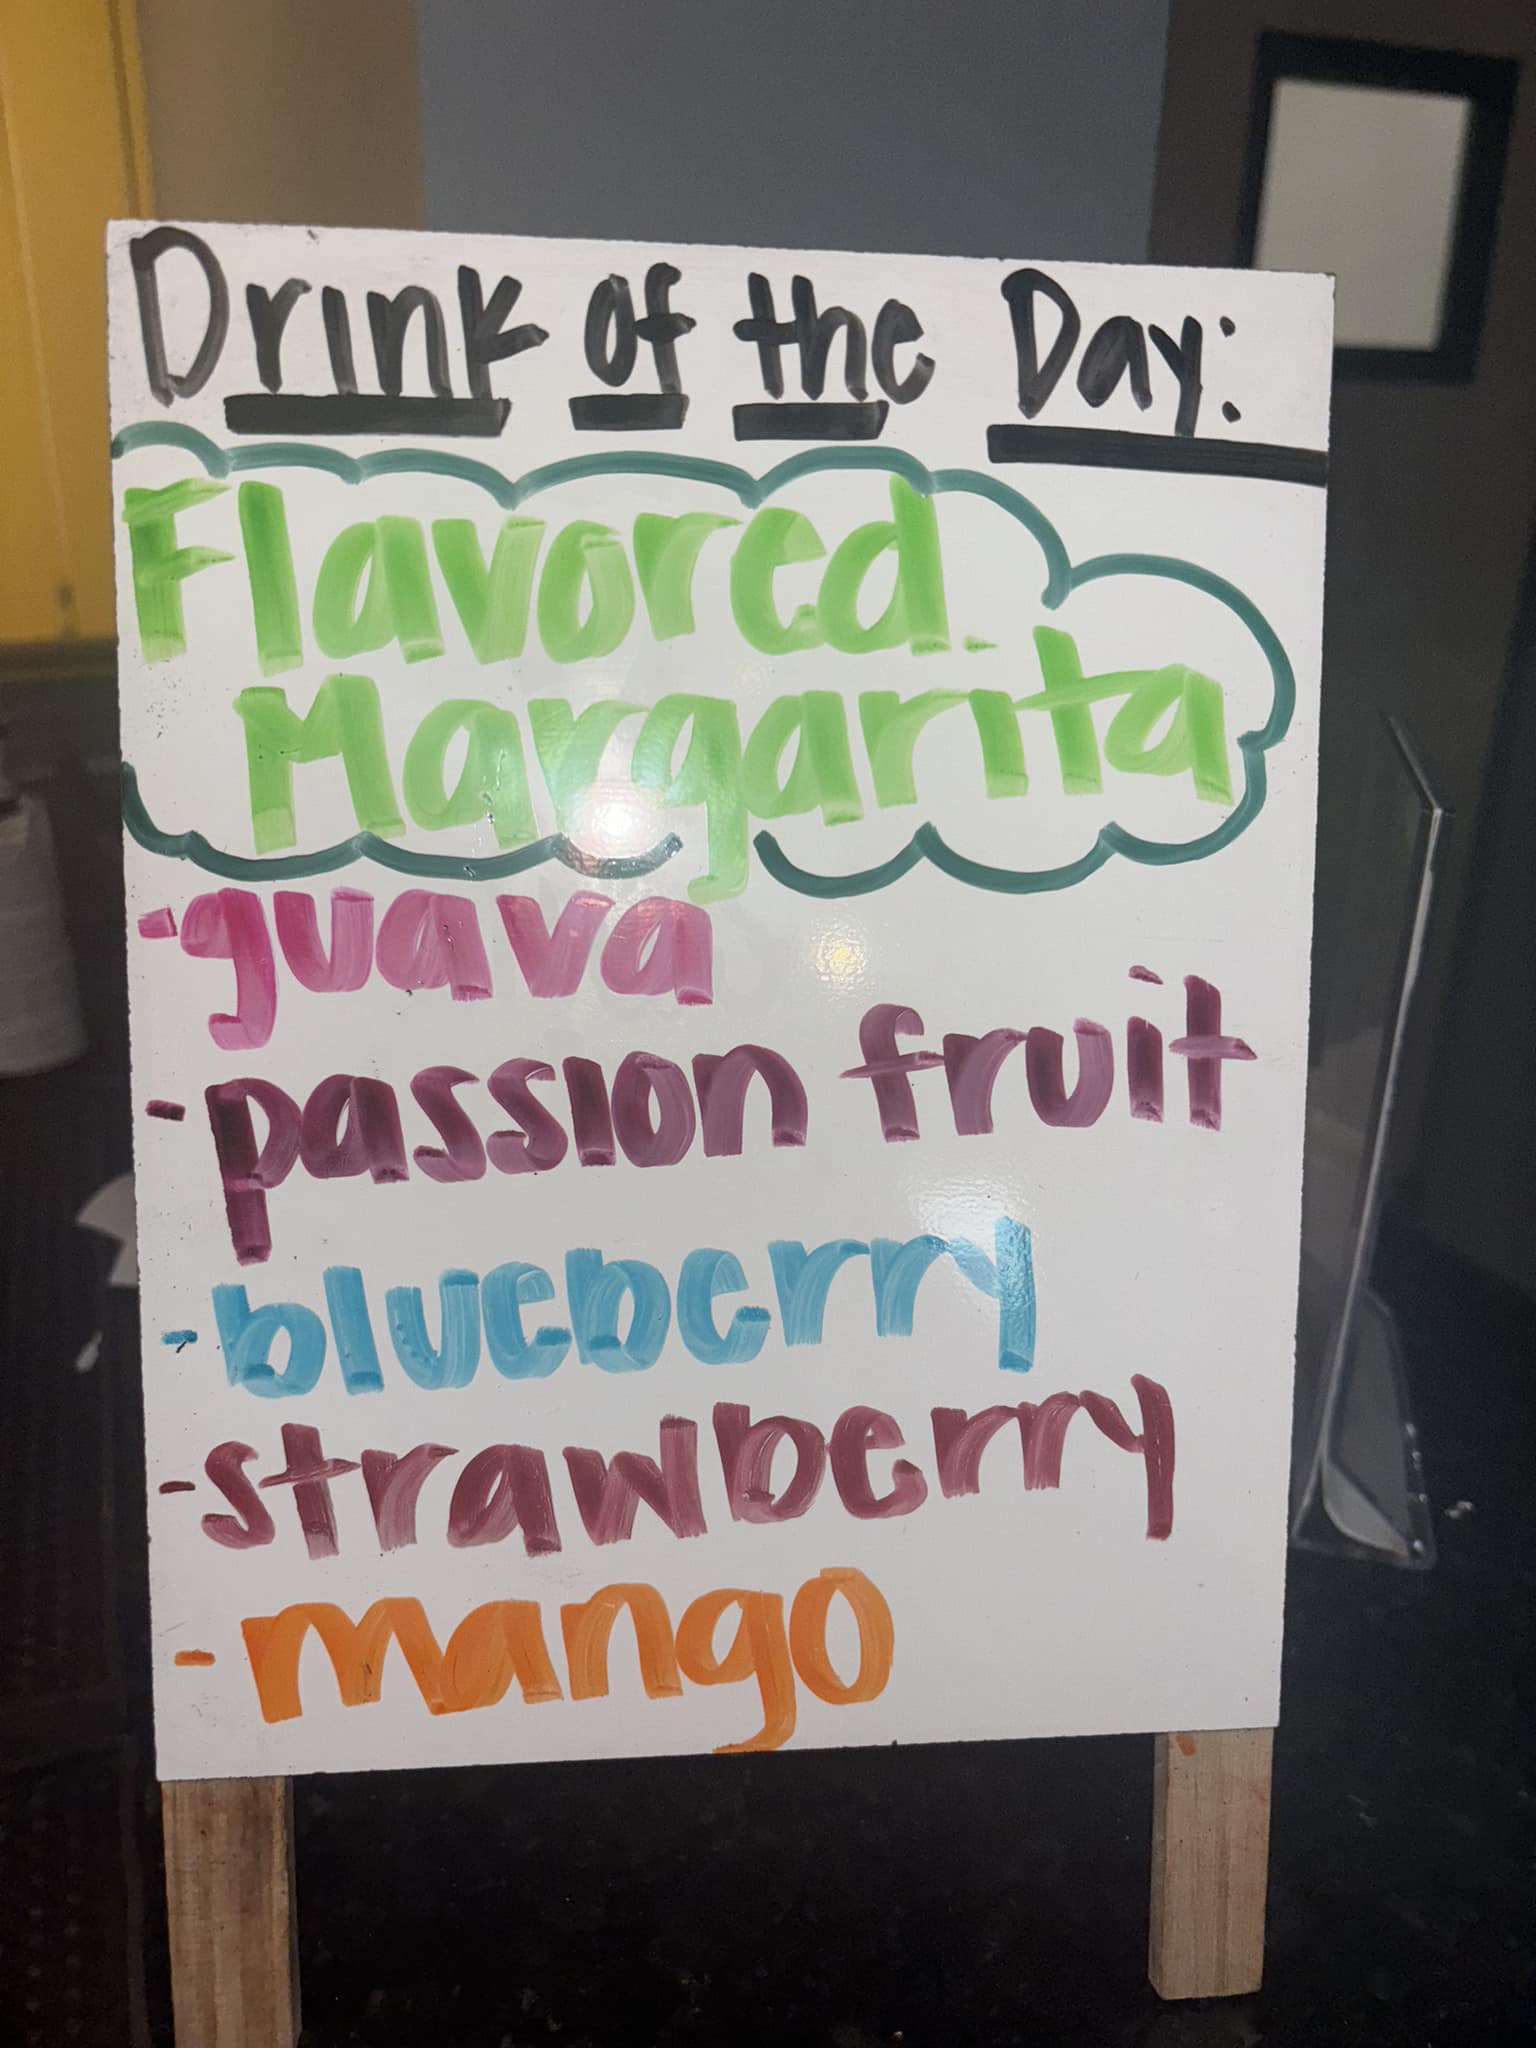 Drink of the Day:
Flavored
Margarita
-guava
-passion fruit
-blueberry
-strawberry
-mango